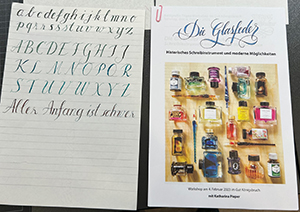 abcdefghijklmno
pqrsstuvwxyz
ABCDEFGHIJ
KLMNOPQR
STUVWXYZ
Aller Anfang ist schwer
Die Glasfeder
Historisches Schreibinstrument und moderne Möglichkeiten
Workshop am 4. Februar 2023 in Gut Königsbruch
mit Katharina Pieper